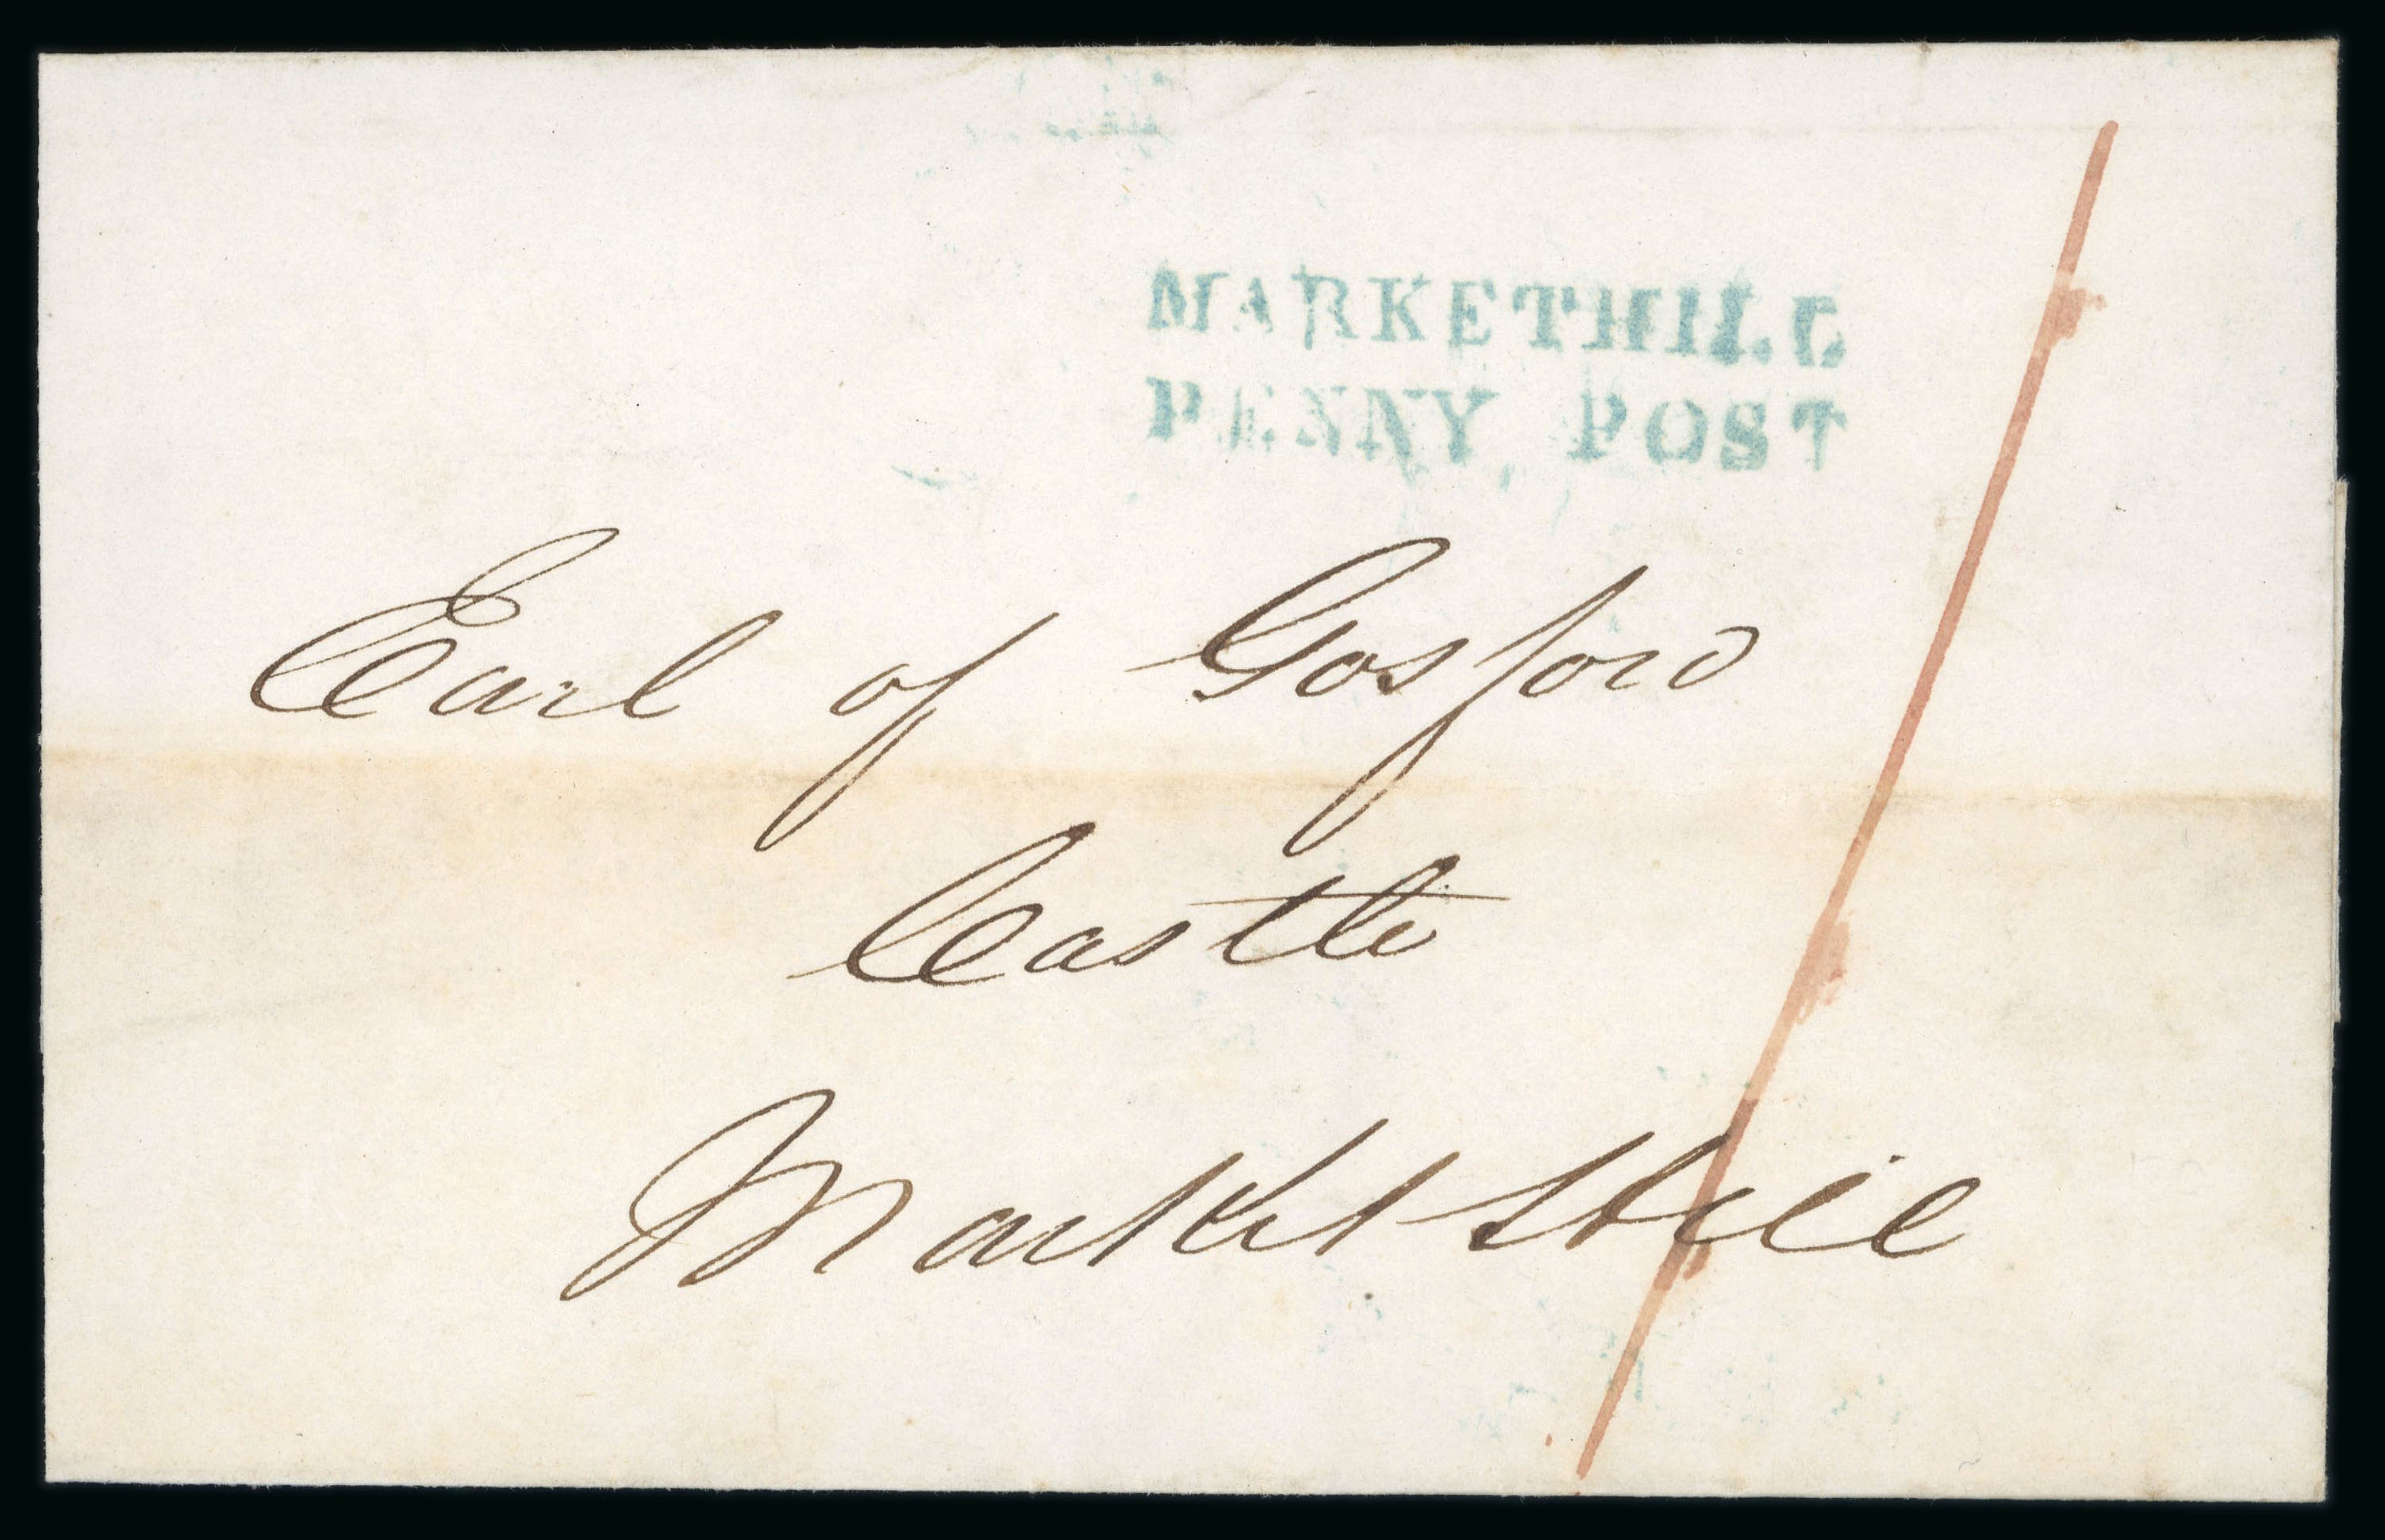 MARKETHILL
PENNY POST
Earl of Gosford
Castle
Market Hill